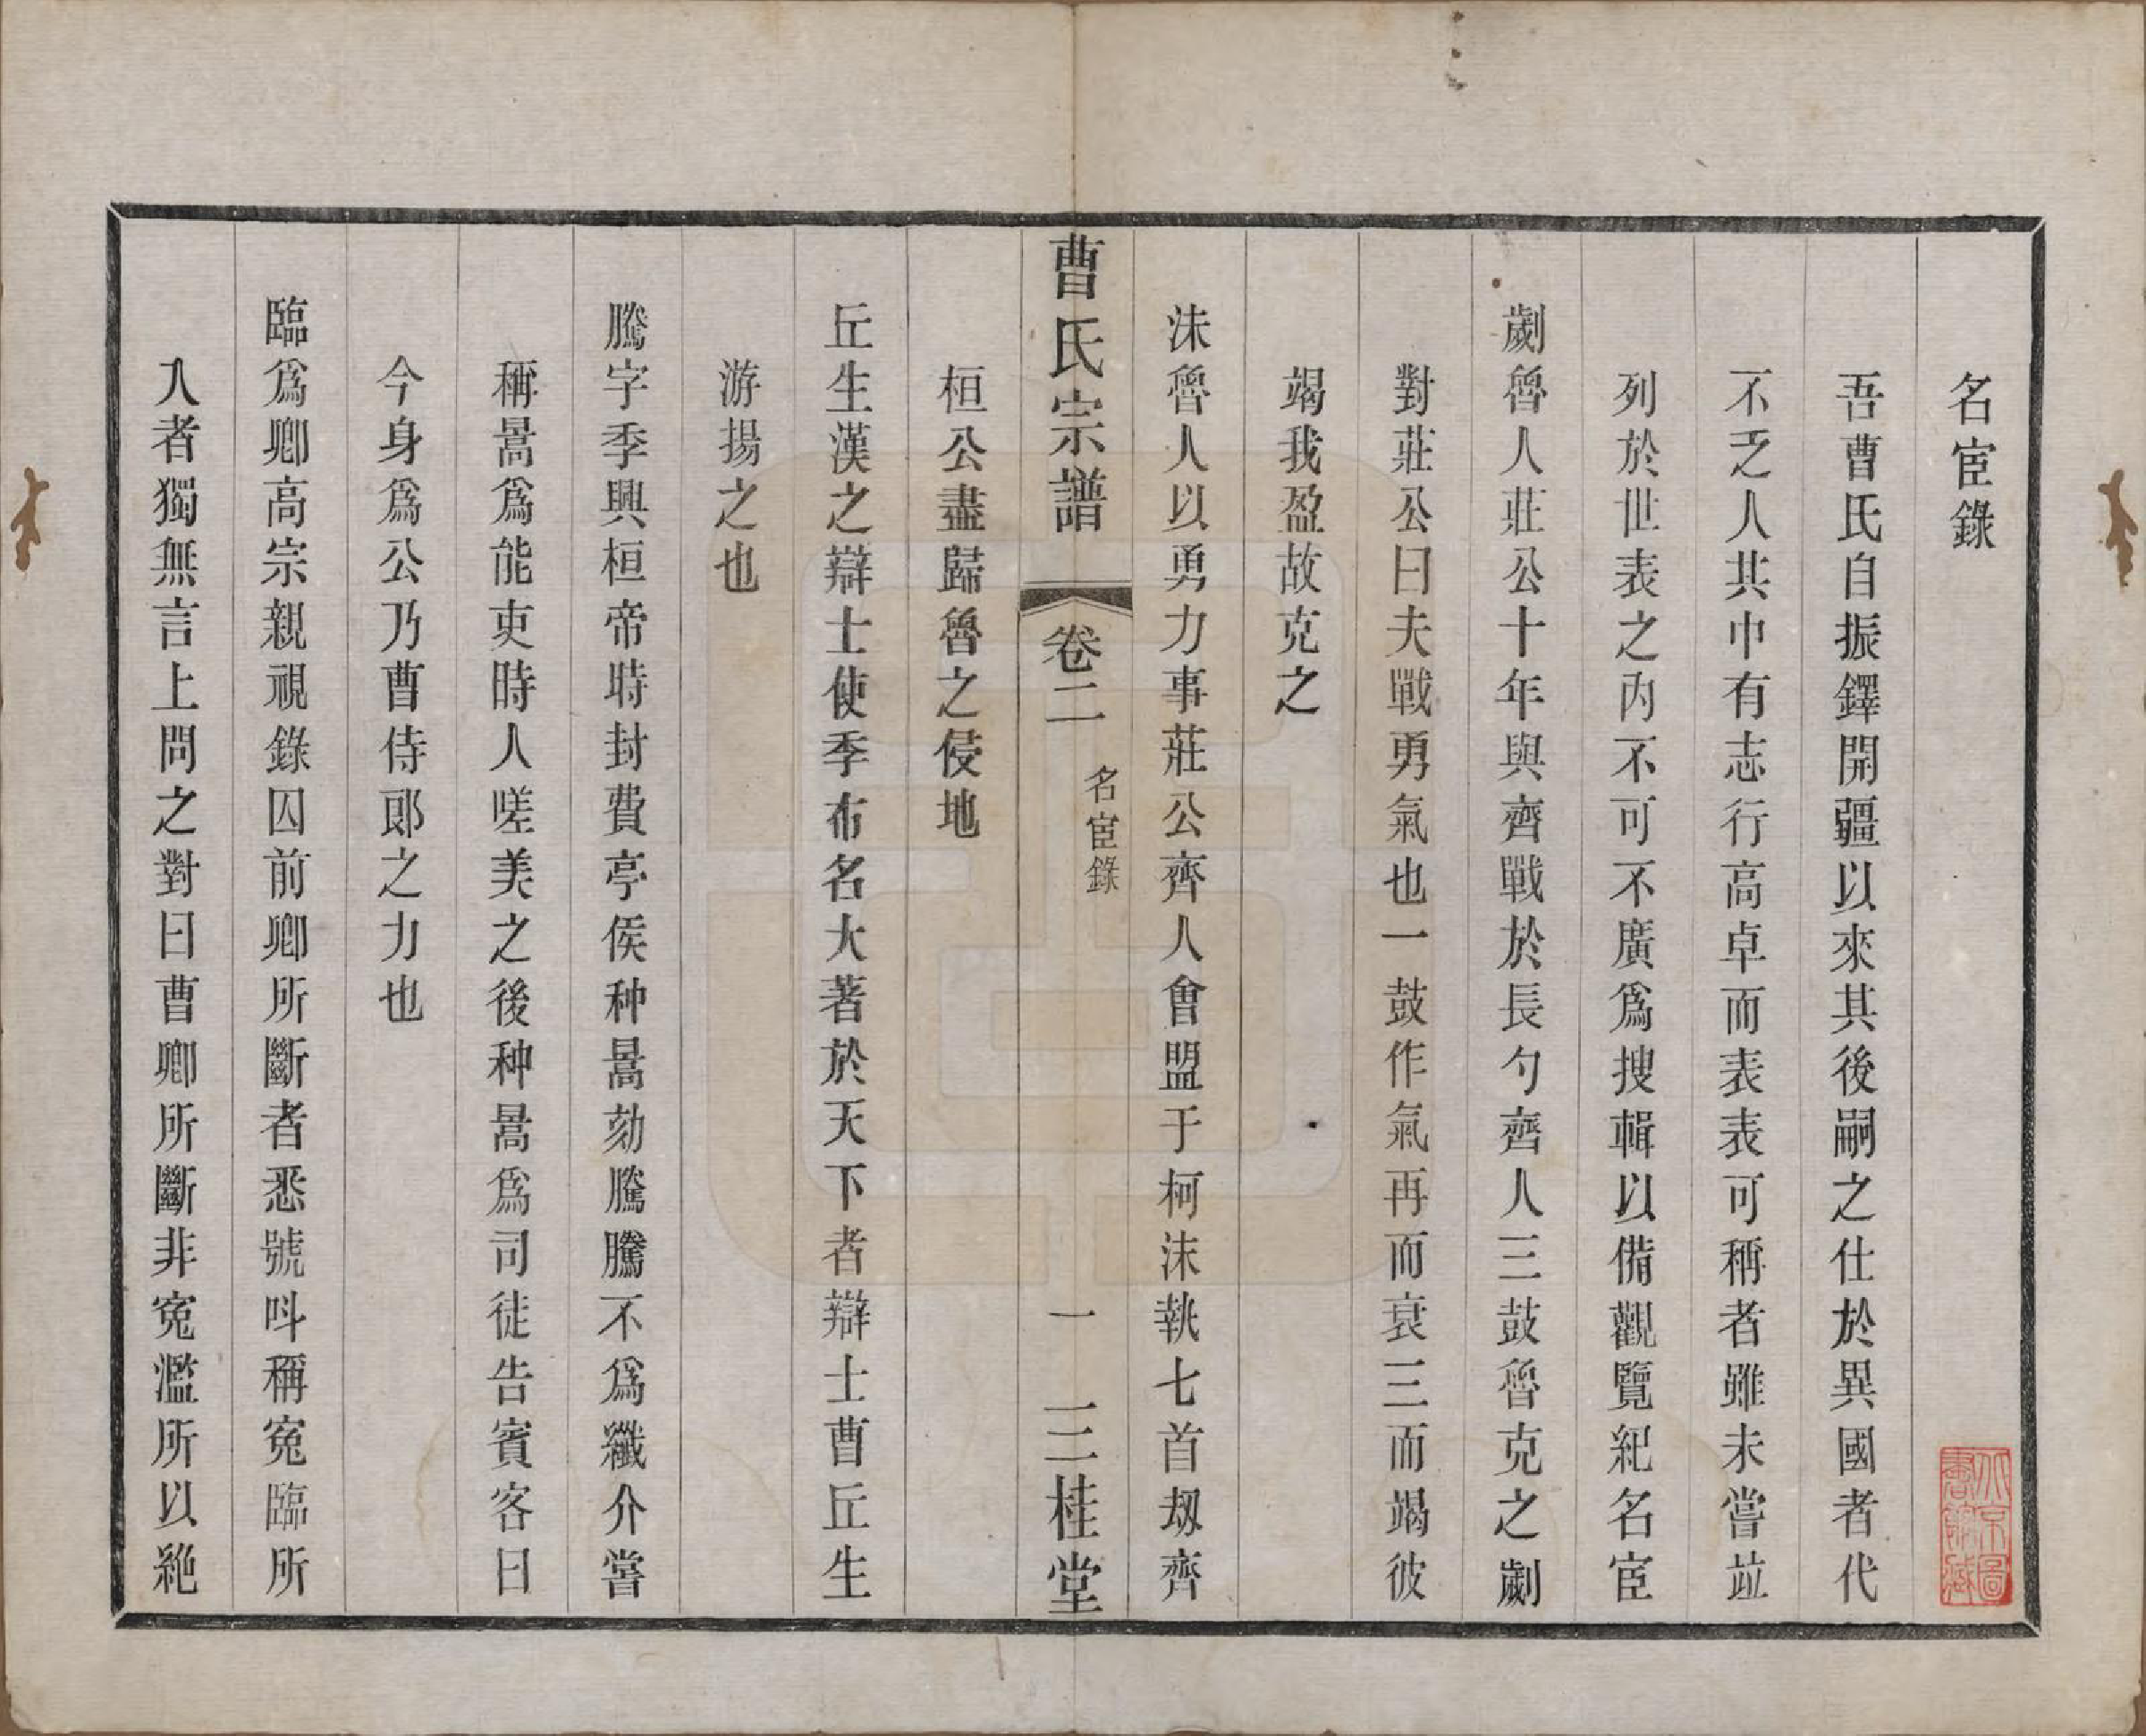 名宦錄
吾曹氏自振鐸開疆以來其後嗣之仕於異國者代
不乏人其中有志行高卓而表表可稱者雖未嘗竝
列於世表之內不可不廣爲搜輯以備觀覽紀名宦
劌魯人莊公十年與齊戰於長勺齊人三鼓魯克之劌
對莊公曰夫戰勇氣也一鼓作氣再而衰三而竭彼
竭我盈故克之
沬魯人以勇力事莊公齊人會盟于柯沬執七首刼齊
曹氏宗譜
卷二
名宦錄
一
三桂堂
桓公盡歸魯之侵地
丘生漢之辯士使季布名大著於天下者辯士曹丘生
游揚之也
騰字季興桓帝時封費亭侯种暠劾騰騰不爲纖介嘗
稱暠爲能吏時人嗟美之後种暠爲司徒告賓客曰
今身爲公乃曹侍郎之力也
臨爲卿高宗親視錄囚前卿所斷者悉號呌稱寃臨所
入者獨無言上問之對曰曹卿所斷非寃濫所以絶